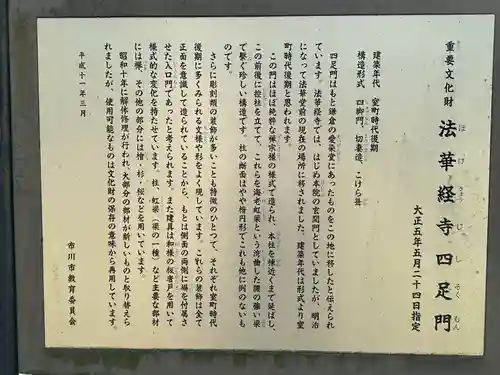 重要文化財 法華経寺四足門
ほけきょうじしそくもん
大正五年五月二十四日指定
建築年代 室町時代後期
構造形式 四脚門、切妻造、こけら葺
四足門はもと鎌倉の愛染堂にあったものをこの地に移したと伝えられ
ています。法華経寺では、はじめ本院の玄関門としていましたが、明治
になって法華堂前の現在の場所に移されました。建築年代は形式より室
町時代後期と思われます。
この門はほぼ純粋な禅宗様の様式で造られ、本柱を棟近くまで延ばし、
この前後に控柱を立てて、これらを海老虹梁という湾曲した腰の強い梁
で繋ぐ珍しい構造です。柱の断面はやや楕円形でこれも他に例のないも
のです。
さらに彫刻類の装飾が多いことも特徴のひとつで、それぞれ室町時代
後期に多くみられる文様や形をよく現しています。これらの装飾は全て
正面を意識して造られていることから、もとは側面の両側に塀を付属さ
せた入口門であったと考えられます。また建具は和様の板唐戸を用いて
様式的な変化を持たせています。柱、虹梁（梁の一種）など主要な部材
には欅、その他の部分には檜・杉・桜などを用いています。
昭和十年に解体修理が行われ、大部分の部材が新しいものと取り替えら
れましたが、使用可能なものは文化財の保存の意味から再用しています。
平成十一年三月
市川市教育委員会